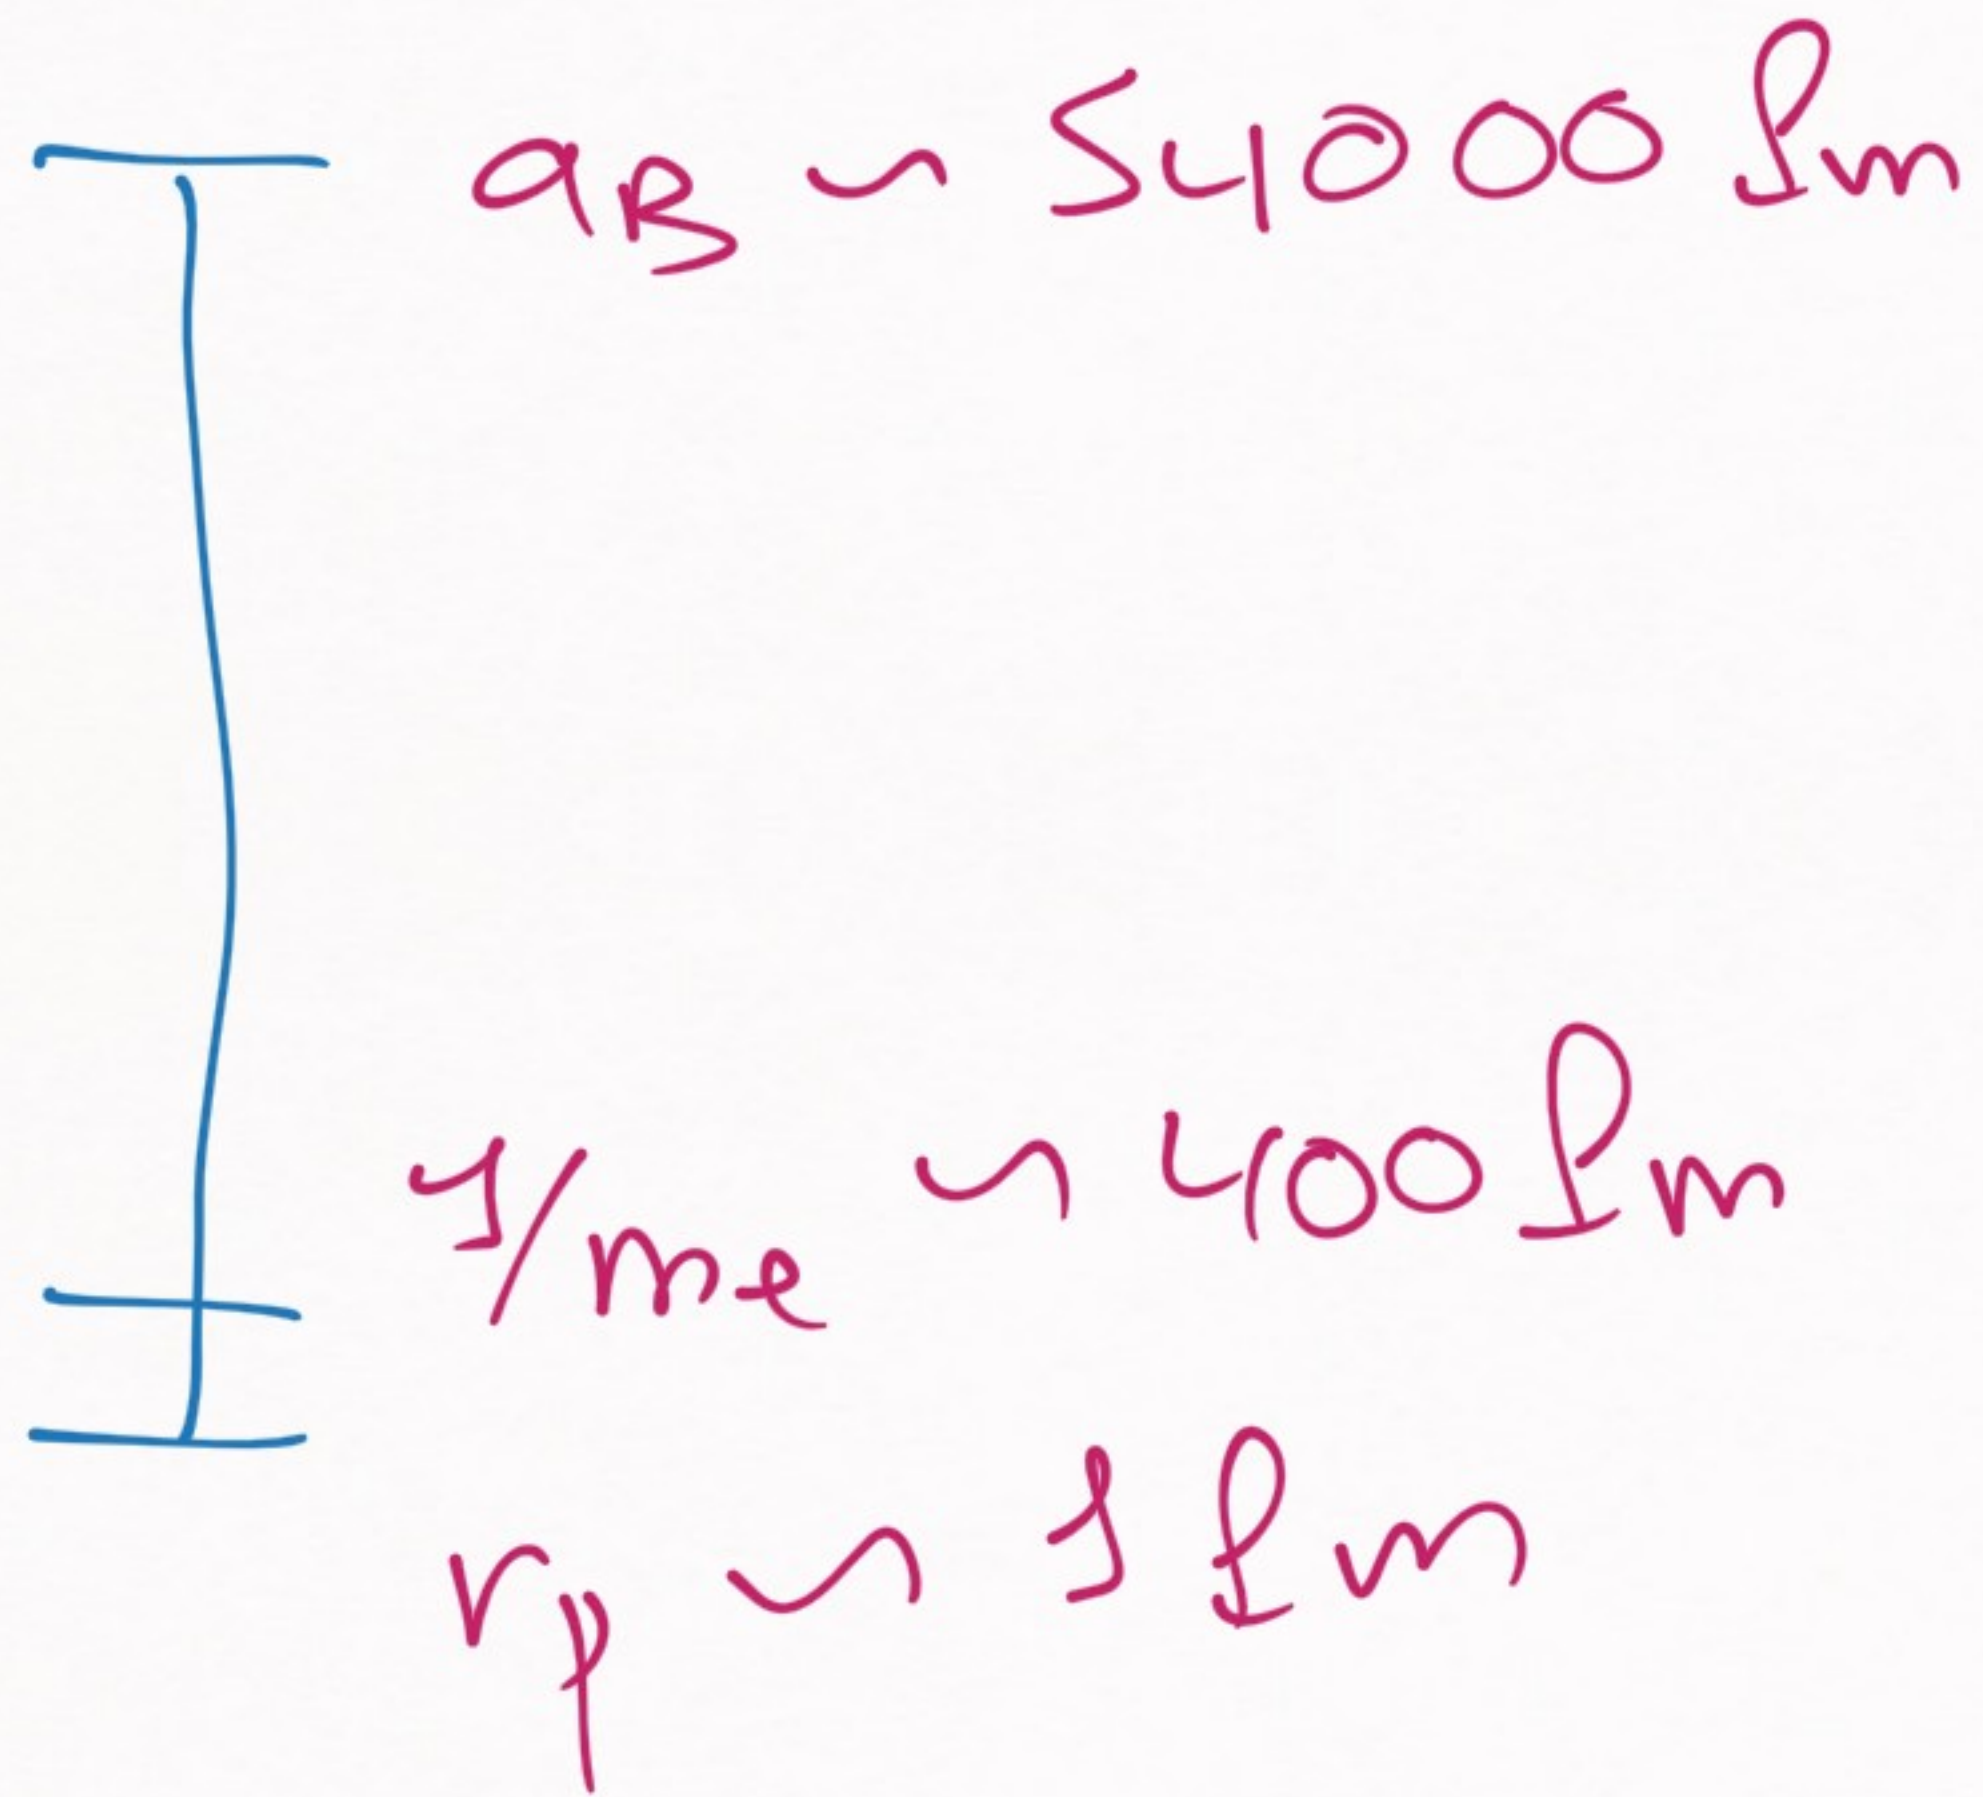 a_B ~ 54000 fm
1/m_e ~ 400 fm
r_p ~ 1 fm